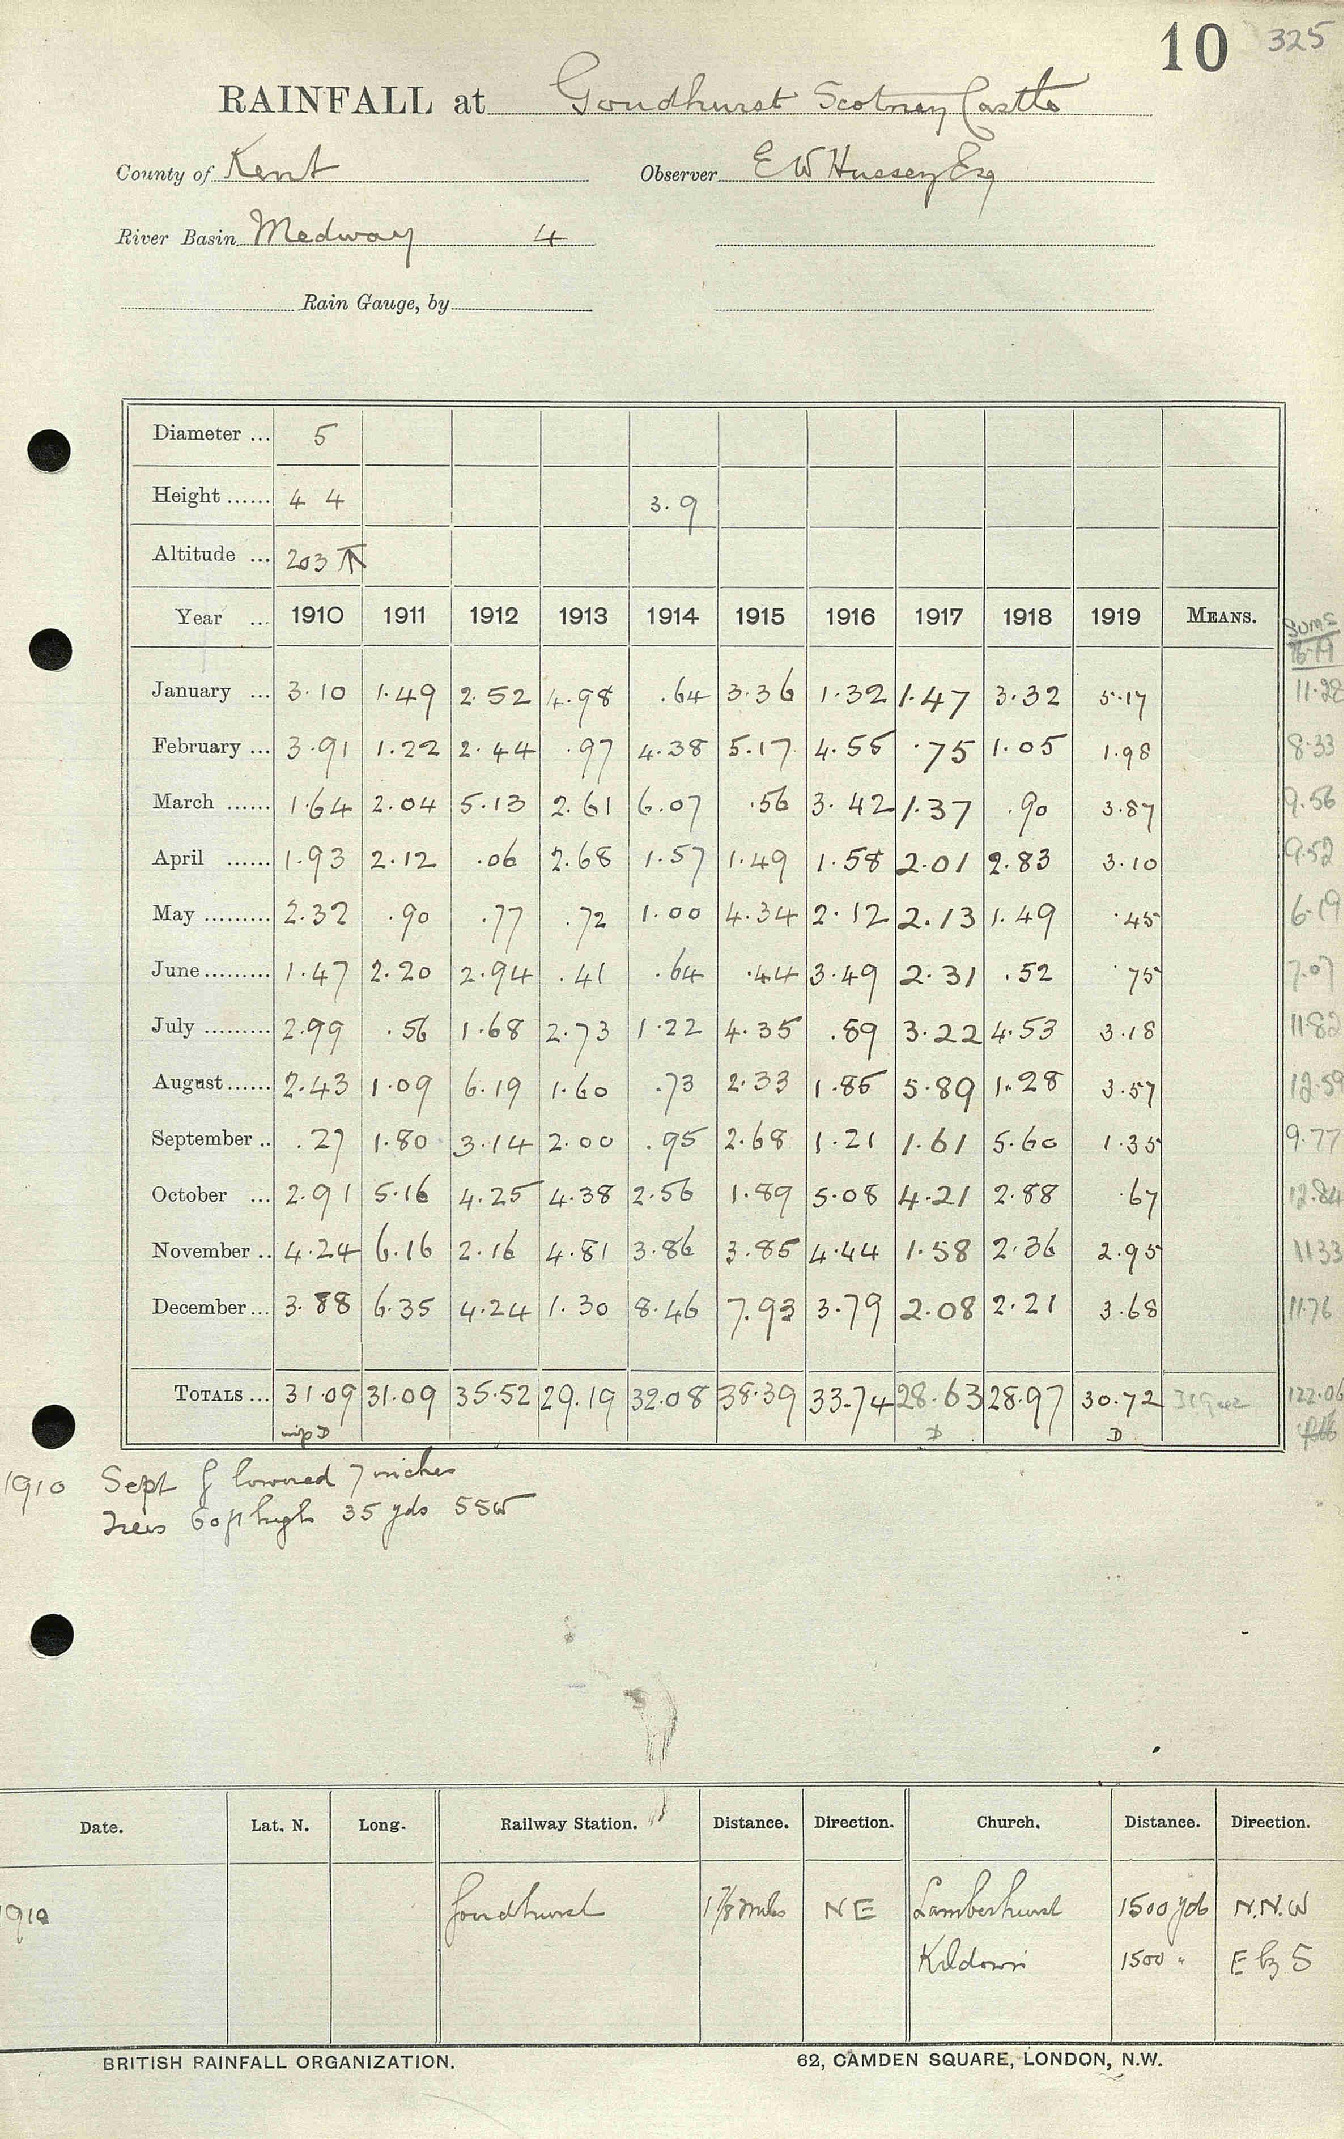 10 325
RAINFALL at Goudhurst Scotney Castle
County of Kent Observer E W Hussey Esq
River Basin Medway 4
Rain Gauge, by
Diameter ... 5
Height ...... 4 4 3.9
Altitude ... 203
Year ... 1910 1911 1912 1913 1914 1915 1916 1917 1918 1919 MEANS. SUMS
16-19
January ... 3.10 1.49 2.52 4.98 .64 3.36 1.32 1.47 3.32 5.17 11.28
February ... 3.91 1.22 2.44 .97 4.38 5.17 4.55 .75 1.05 1.98 8.33
March ...... 1.64 2.04 5.13 2.61 6.07 .56 3.42 1.37 .90 3.87 9.56
April ...... 1.93 2.12 .06 2.68 1.57 1.49 1.58 2.01 2.83 3.10 9.52
May ......... 2.32 .90 .77 .72 1.00 4.34 2.12 2.13 1.49 .45 6.19
June ......... 1.47 2.20 2.94 .41 .64 .44 3.49 2.31 .52 .75 7.07
July ......... 2.99 .56 1.68 2.73 1.22 4.35 .89 3.22 4.53 3.18 11.82
August ...... 2.43 1.09 6.19 1.60 .73 2.33 1.85 5.89 1.28 3.57 12.59
September .. .27 1.80 3.14 2.00 .95 2.68 1.21 1.61 5.60 1.35 9.77
October ... 2.91 5.16 4.25 4.38 2.56 1.89 5.08 4.21 2.88 .67 12.84
November .. 4.24 6.16 2.16 4.81 3.86 3.85 4.44 1.58 2.36 2.95 11.33
December ... 3.88 6.35 4.24 1.30 8.46 7.93 3.79 2.08 2.21 3.68 11.76
TOTALS ... 31.09 31.09 35.52 29.19 32.08 38.39 33.74 28.63 28.97 30.72 122.06
D D D
1910 Sept g lowered 7 inches
Trees 60 ft high 35 yds SSW
Date. Lat. N. Long. Railway Station. Distance. Direction. Church. Distance. Direction.
1910 Goudhurst 1 7/8 miles NE Lamberhurst 1500 yds N.N.W
Kildown 1500 " E by S
BRITISH RAINFALL ORGANIZATION. 62, CAMDEN SQUARE, LONDON, N.W.